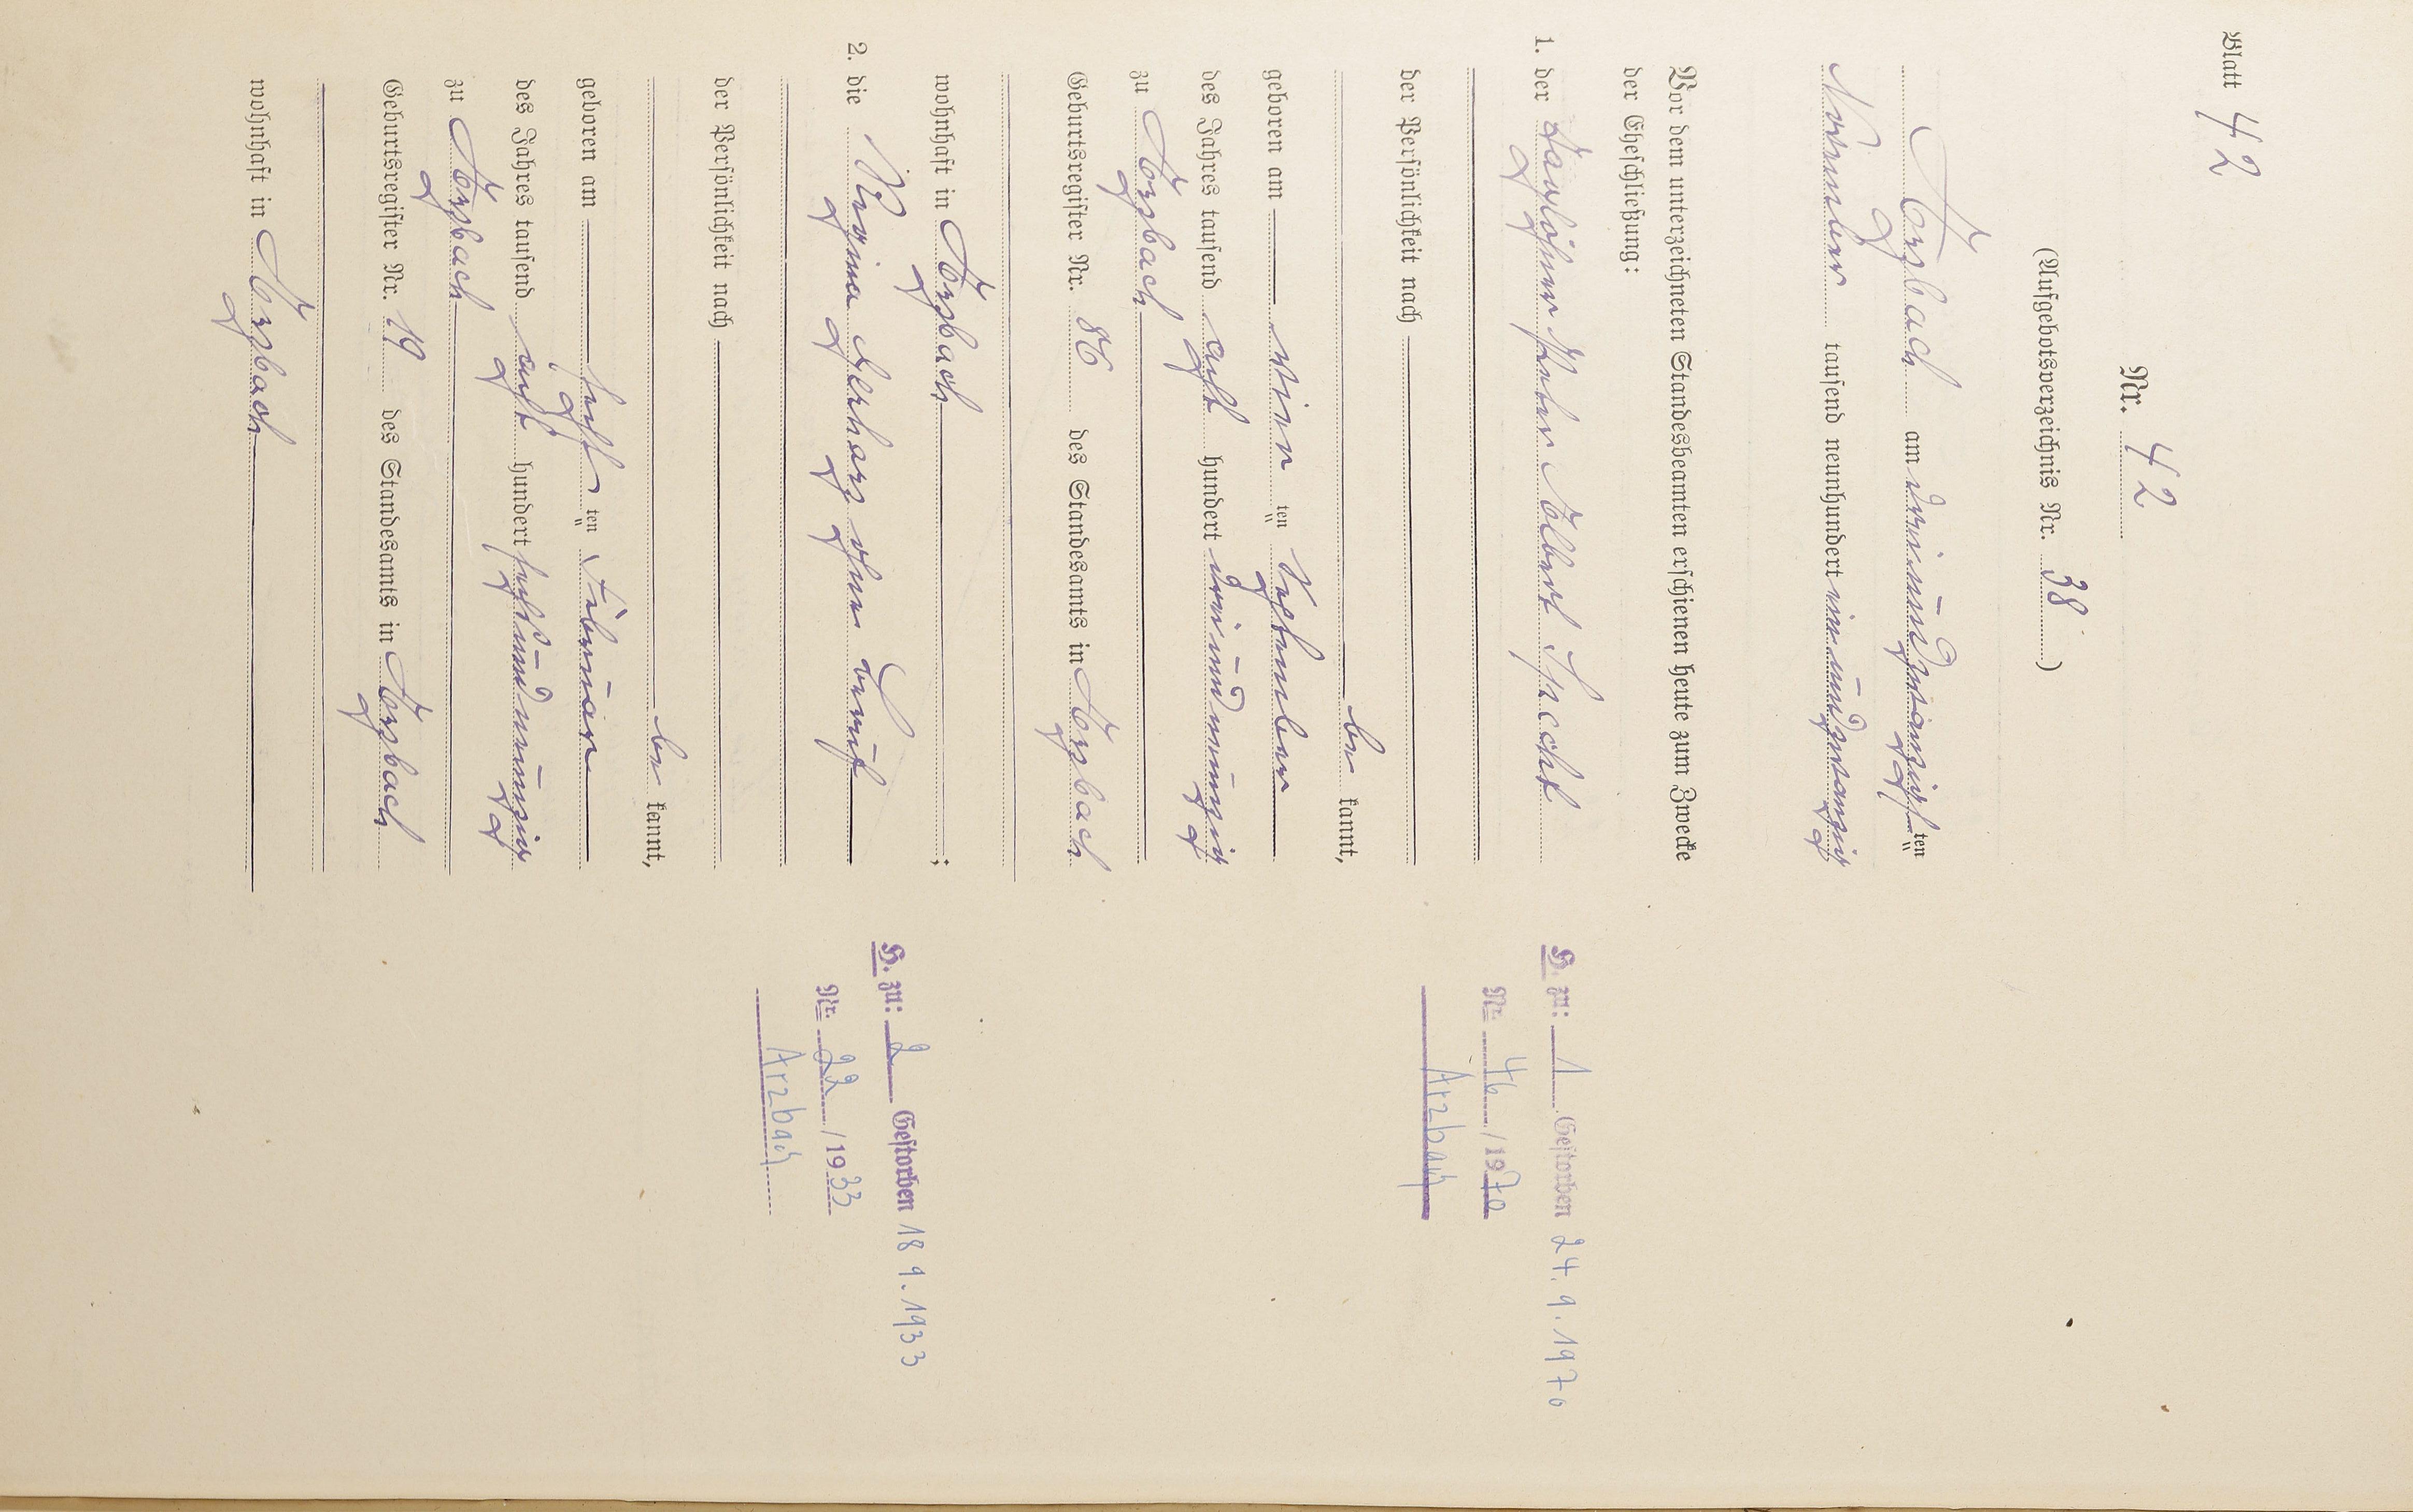 Blatt 42
Nr. 42
(Aufgebotsverzeichnis Nr. 38)
Arzbach am dreiundzwanzigsten
November tausend neunhundert einundzwanzig
Vor dem unterzeichneten Standesbeamten erschienen heute zum Zwecke
der Eheschließung:
1. der Taglöhner Peter Albert Specht
der Persönlichkeit nach
be kannt,
geboren am vierten September
des Jahres tausend acht hundert dreiundneunzig
zu Arzbach
Geburtsregister Nr. 86 des Standesamts in Arzbach
wohnhaft in Arzbach;
2. die Regina Gerharz ohne Beruf
der Persönlichkeit nach
be kannt,
geboren am sechsten Februar
des Jahres tausend acht hundert sechsundneunzig
zu Arzbach
Geburtsregister Nr. 19 des Standesamts in Arzbach
wohnhaft in Arzbach
H. zu: 1 Gestorben 24.9.1970
Nr. 46/1970
Arzbach
H. zu: 2 Gestorben 18 9.1933
Nr. 22/1933
Arzbach